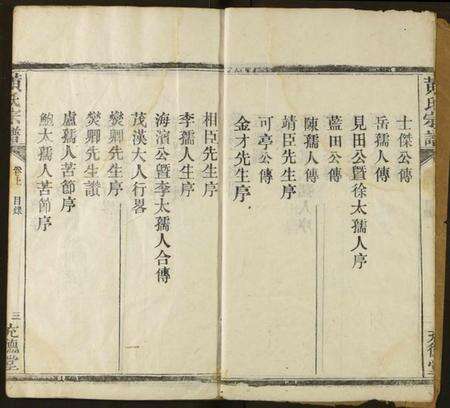 黃氏宗譜
士傑公傳
岳孺人傳
見田公暨徐太孺人序
藍田公傳
陳孺人傳
靖臣先生序
可亭公傳
金才先生序
相臣先生序
李孺人生序
海濱公暨李太孺人合傳
茂漢大人行畧
燮卿先生序
燮卿先生讃
盧孺人苦節序
鮑太孺人苦節序
黃氏宗譜
卷上 目錄
三
克德堂